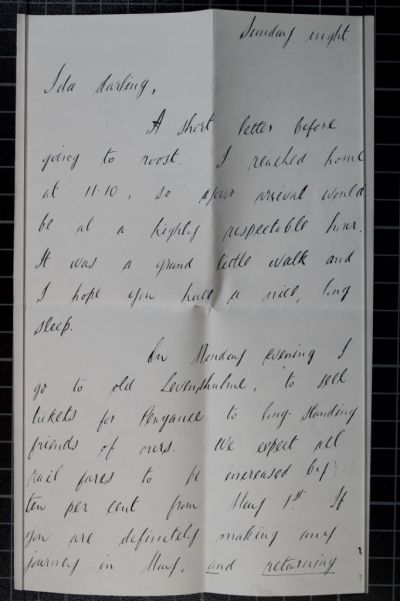 Sunday night
Ida darling,
A short letter before
going to roost. I reached home
at 11.10, so your arrival would
be at a highly respectable hour.
It was a grand little walk and
I hope you have a nice, long
sleep.
On Monday evening I
go to old Levenshulme, to sell
tickets for Penzance to long-standing
friends of ours. We expect all
rail fares to be increased by
ten per cent from May 1st. If
you are definitely making any
journey in May, and returning